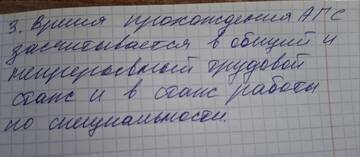 3. Время прохождения АГС
засчитывается в общий и
непрерывный трудовой
стаж и в стаж работы
по специальности.